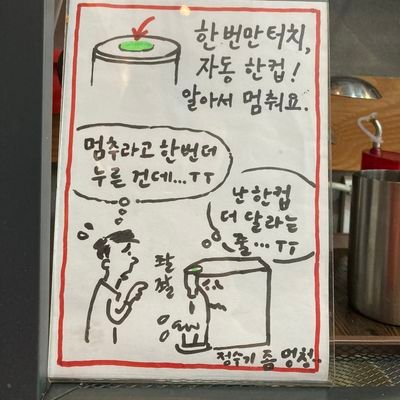 한번만 터치,
자동 한컵!
알아서 멈춰요.
멈추라고 한번더
누른 건데...ㅠㅠ
난 한컵
더 달라는
줄...ㅠㅠ
콸
콸
정수기 좀 멍청..